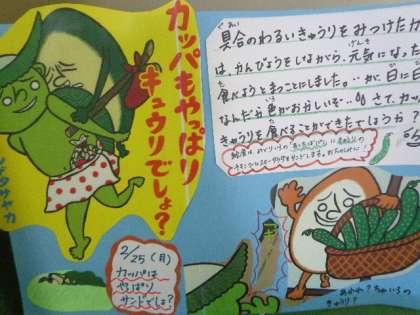 カッパもやっぱり
キュウリでしょ?
シゲタサヤカ
2/25(月)
カッパは
やっぱり
サンドでしょ?
具合のわるいきゅうりをみつけたカ
は、かんびょうをしながら、元気になった
食べようとまつことにしました。…が、日に日
なんだか色がおかしいぞ…。さて、カッ
きゅうりを食べることができたでしょうか?
あれれ?ちゃいろの
きゅうり?